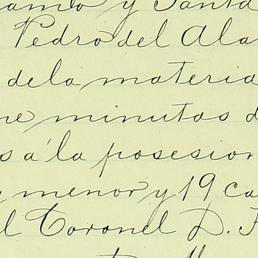 y Santa
Pedro del Ala
de la materia
minutos d
s a' la posesion
menor y 19 ca
l Coronel D. F